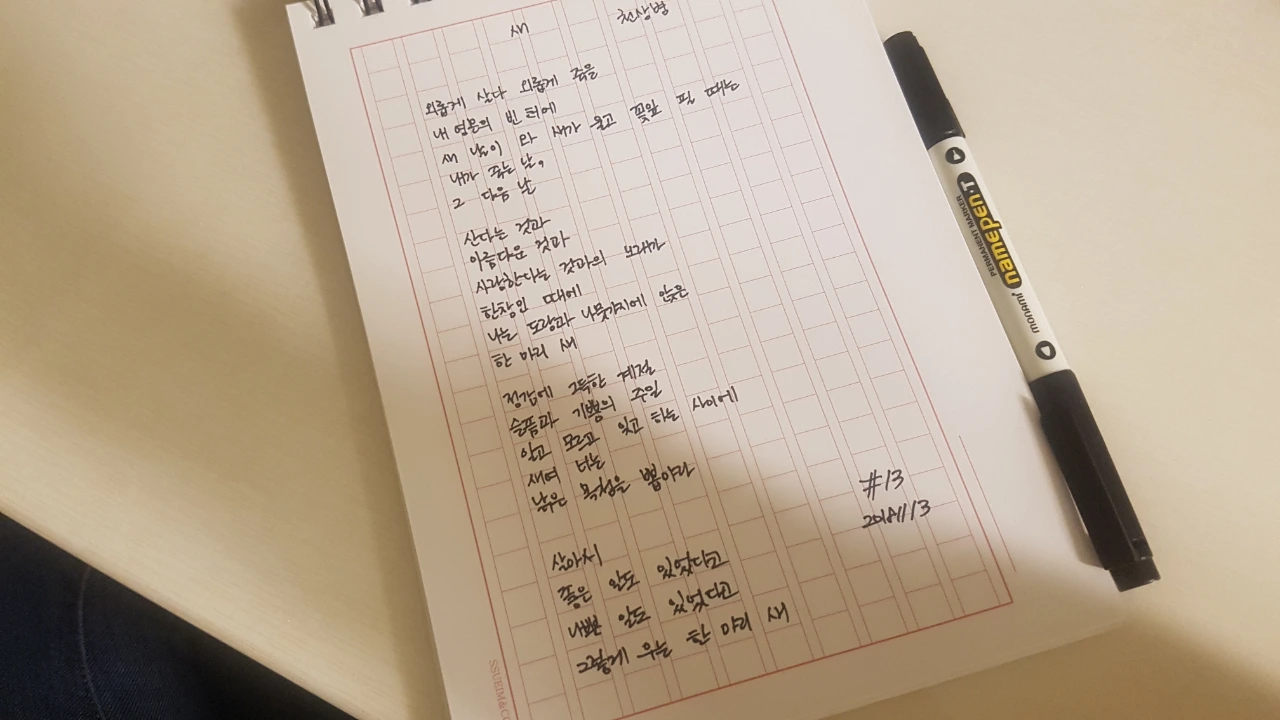 새 천상병
외롭게 살다 외롭게 죽을
내 영혼의 빈 터에
새 날이 와 새가 울고 꽃잎 필 때는
내가 죽는 날,
그 다음 날
산다는 것과
아름다운 것과
사랑한다는 것과의 노래가
한창인 때에
나는 도랑과 나뭇가지에 앉은
한 마리 새
정감에 그득한 계절
슬픔과 기쁨의 주일
알고 모르고 잊고 하는 사이에
새여 너는
낡은 목청을 뽑아라
살아서
좋은 일도 있었다고
나쁜 일도 있었다고
그렇게 우는 한 마리 새
#13
20181113
SSUEIM&CO
monami namepen·T
PERMANENT MARKER